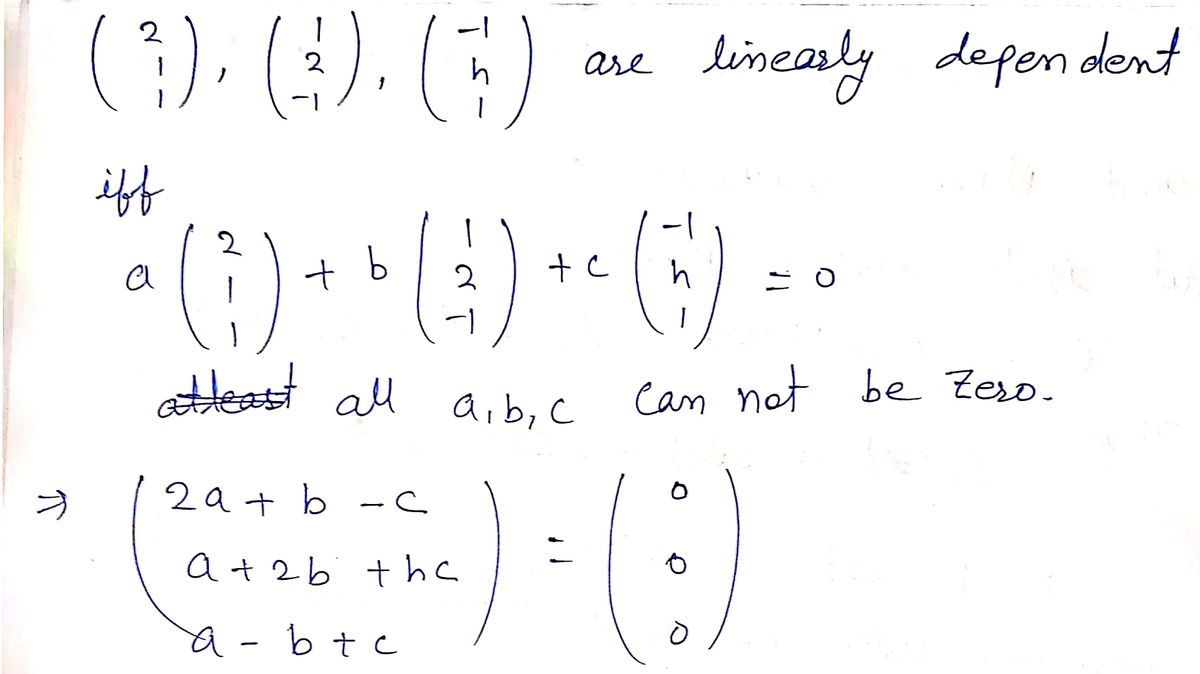 (2 1 1), (1 2 -1), (-1 h 1) are linearly dependent
iff
a (2 1 1) + b (1 2 -1) + c (-1 h 1) = 0
atleast all a, b, c can not be zero.
⇒ (2a + b - c
a + 2b + hc
a - b + c) = (0 0 0)